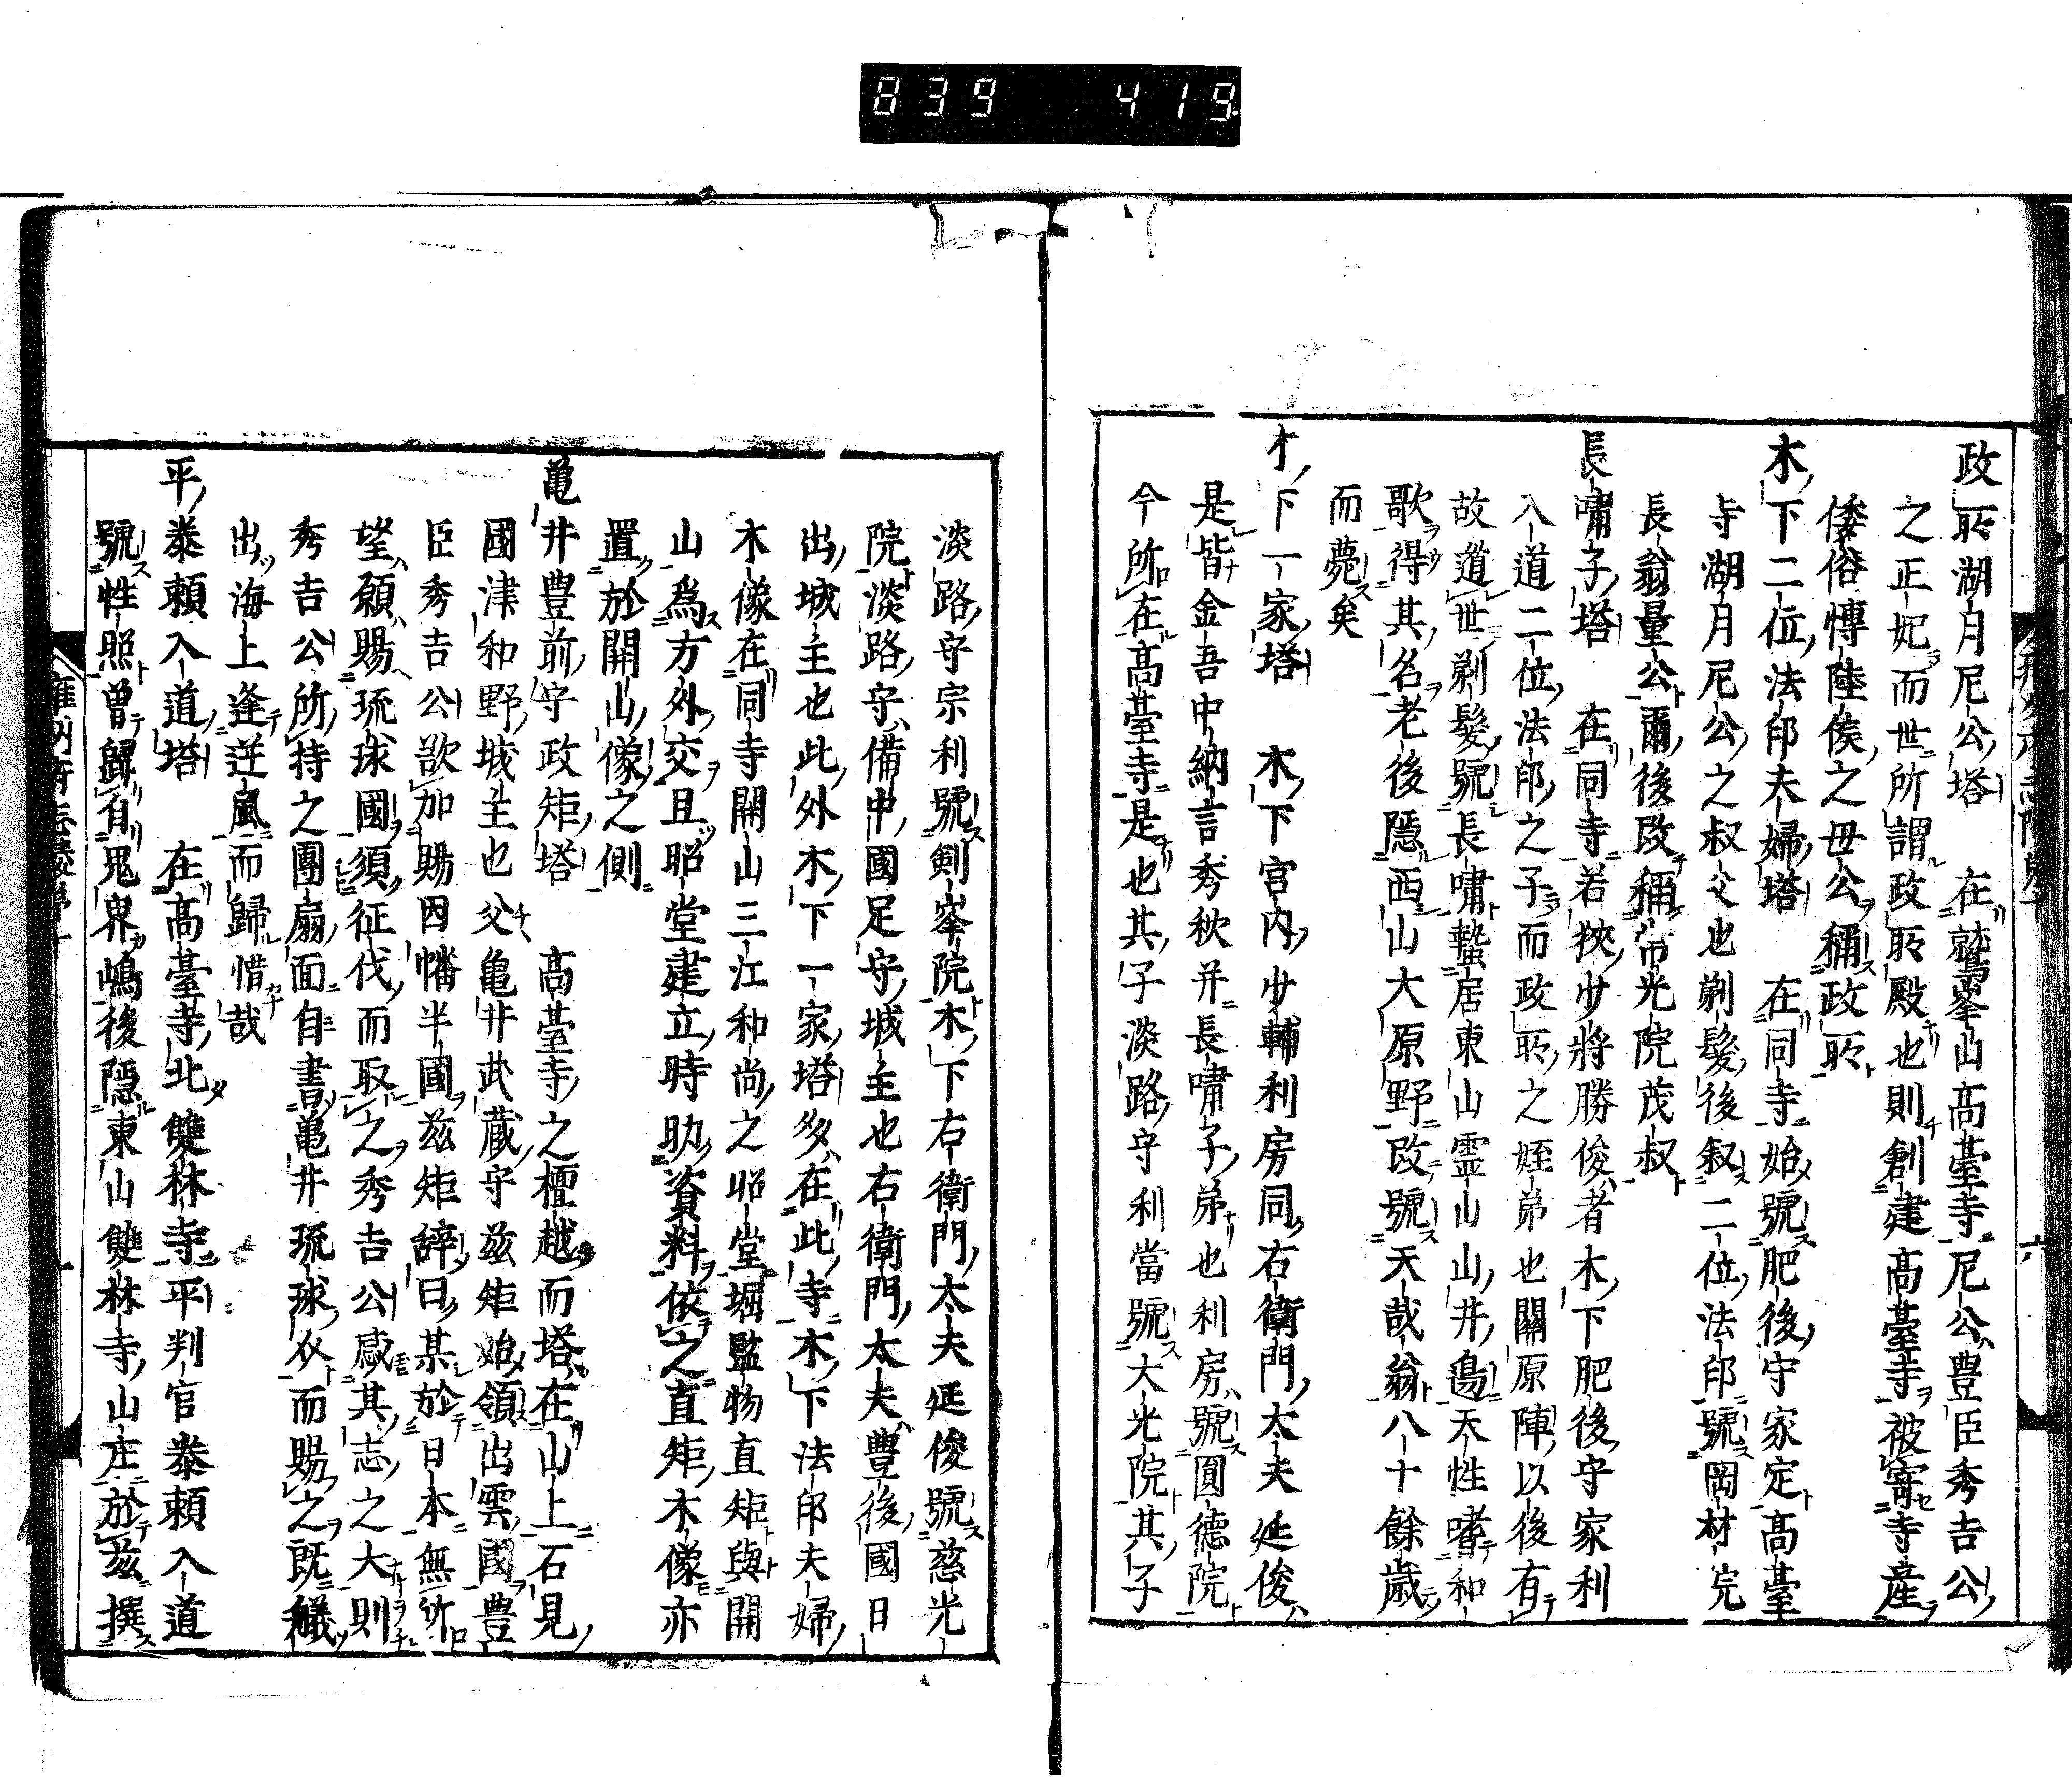 839 419
政所湖月尼公塔　在鷲峯山高臺寺尼公豊臣秀吉公
之正妃而世所謂政所殿也則創建高臺寺被寄寺産
倭俗慱陸侯之母公稱政所
木下二位法印夫婦塔　在同寺始號肥後守家定高臺
寺湖月尼公之叔父也剃髮後叙二位法印號岡材完
長翁量公爾後改稱常光院茂叔
長嘯子塔　在同寺若狹少將勝俊者木下肥後守家利
入道二位法印之子而政所之姪弟也關原陣以後有
故遁世剃髮號長嘯蟄居東山霊山山井邉天性嗜和
歌得其名老後隱西山大原野改號天哉翁八十餘歳
而薨矣
木下一家塔　木下宮内少輔利房同右衛門太夫延俊
是皆金吾中納言秀秋并長嘯子弟也利房號圓德院
今所在高臺寺是也其子淡路守利當號大光院其子
淡路守宗利號剣峯院木下右衛門太夫延俊號慈光
院淡路守備中國足守城主也右衛門太夫豊後國日
出城主也此外木下一家塔多在此寺木下法印夫婦
木像在同寺開山三江和尚之昭堂堀監物直矩與開
山爲方外交且昭堂建立時助資料依之直矩木像亦
置於開山像之側
亀井豊前守政矩塔　高臺寺之檀越而塔在山上石見
國津和野城主也父亀井武蔵守茲矩始領出雲國豊
臣秀吉公欲加賜因幡半國茲矩辞曰某於日本無所
望願賜琉球國須征伐而取之秀吉公感其志之大則
秀吉公所持之團扇面自書亀井琉球以而賜之既艤
出海上逢逆風而歸惜哉
平泰頼入道塔　在高臺寺北雙林寺平判官泰頼入道
號性照曽歸有鬼界嶋後隱東山雙林寺山庄於茲撰
雍州府志巻第十
六